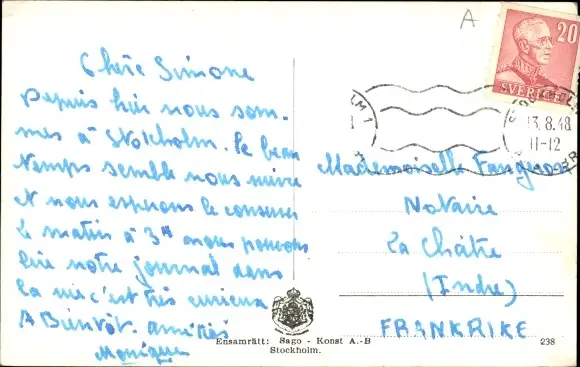 A
Chère Simone
Depuis hier nous som-
mes à Stokholm. le beau
temps semble nous suivre
et nous espérons le conserver
le matin à 3H nous pouvons
lire notre journal dans
la rue c'est très curieux
A Bientôt. amitiés
Monique
20
SVERIGE
LM 1
13.8.48
11-12
Mademoiselle
Notaire
La Châtre
(Indre)
FRANKRIKE
Ensamrätt: Sago - Konst A.-B
Stockholm.
238